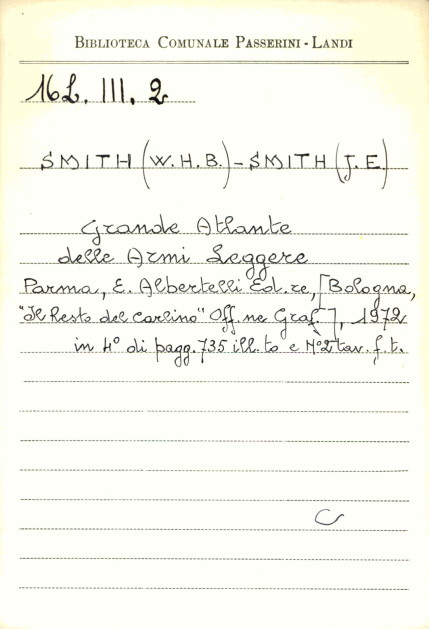 BIBLIOTECA COMUNALE PASSERINI - LANDI
16L. III. 2
SMITH (W.H.B.) - SMITH (J.E.)
Grande Atlante
delle Armi Leggere
Parma, E. Albertelli Ed.re, [Bologna,
"Il Resto del Carlino" Off.ne Graf.], 1972
in 4° di pagg. 735 ill.to e N°2 tav. f.t.
C